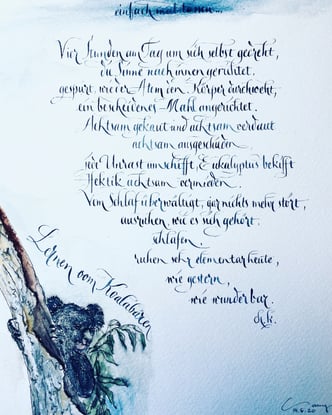 einfach mal tönen...
Vier Stunden am Tag um sich selbst gedreht,
die Sinne nach innen gerichtet.
gespürt, wie der Atem den Körper durchweht,
ein bescheidenes Mahl angerichtet.
Achtsam gekaut und achtsam verdaut
achtsam ausgeschieden
die Unrast umschifft, Eukalyptus bekifft
Hektik achtsam vermieden.
Vom Schlaf überwältigt, gar nichts mehr stört,
ausruhen, wie es sich gehört.
schlafen.
ruhen sehr elementar heute,
wie gestern,
wie wunderbar.
Lernen vom Koalabären